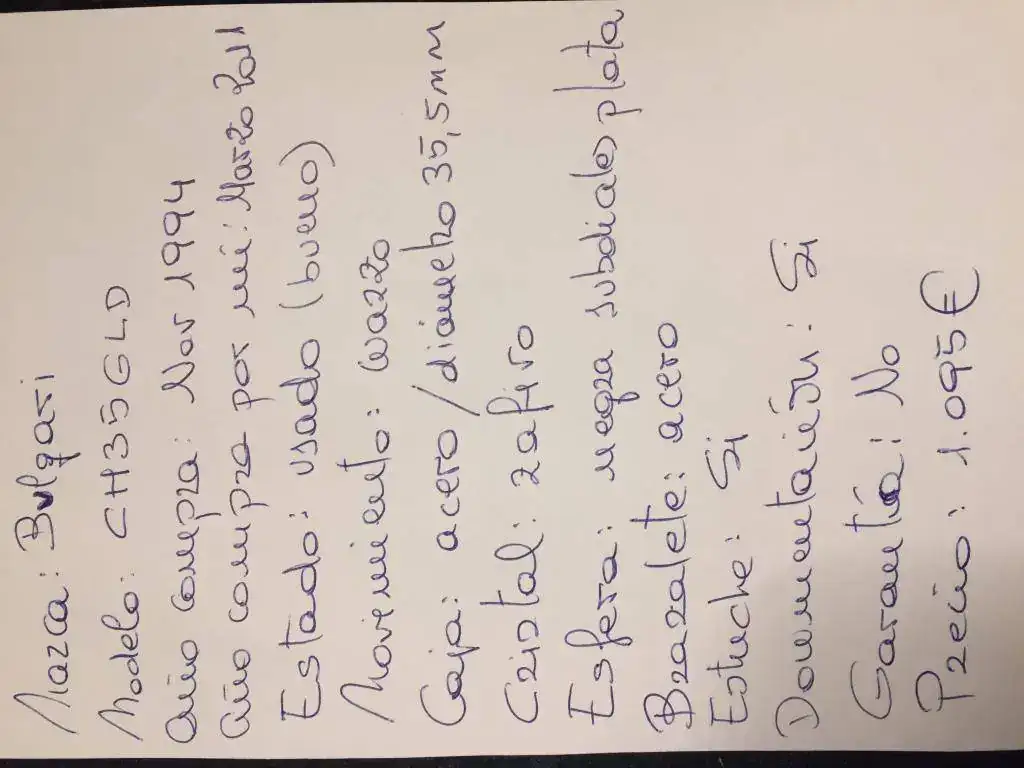 Marca: Bulgari
Modelo: CH35GLD
año compra: Nov 1994
año compra por mí: Marzo 2011
Estado: usado (bueno)
Movimiento: cuarzo
Caja: acero / diametro 35,5mm
Cristal: zafiro
Esfera: negra subdiales plata
Brazalete: acero
Estuche: Si
Documentación: Si
Garantía: No
Precio: 1.095€